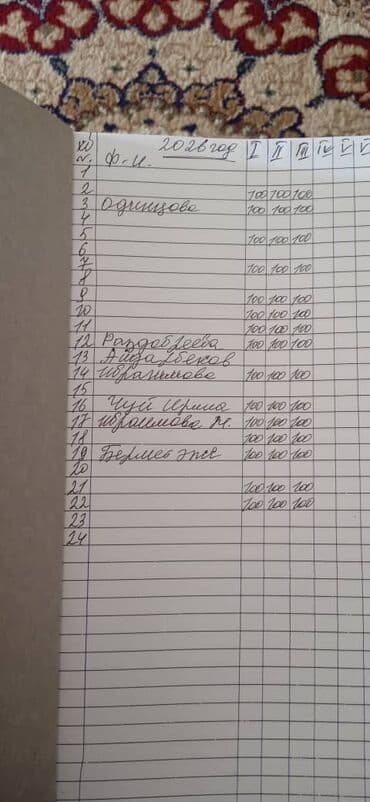 кв. Ф.И. 2026 год I II III IV V V
1
2 100 100 100
3 Одинцова 100 100 100
4
5 100 100 100
6
7 100 100 100
8
9 100 100 100
10 100 100 100
11 100 100 100
12 Раздобреева 100 100 100
13 Айдарбеков
14 Ибрагимова 100 100 100
15
16 Чуй Ирина 100 100 100
17 Ибраимова М. 100 100 100
18 100 100 100
19 Бермет эже 100 100 100
20
21 100 100 100
22 100 100 100
23
24